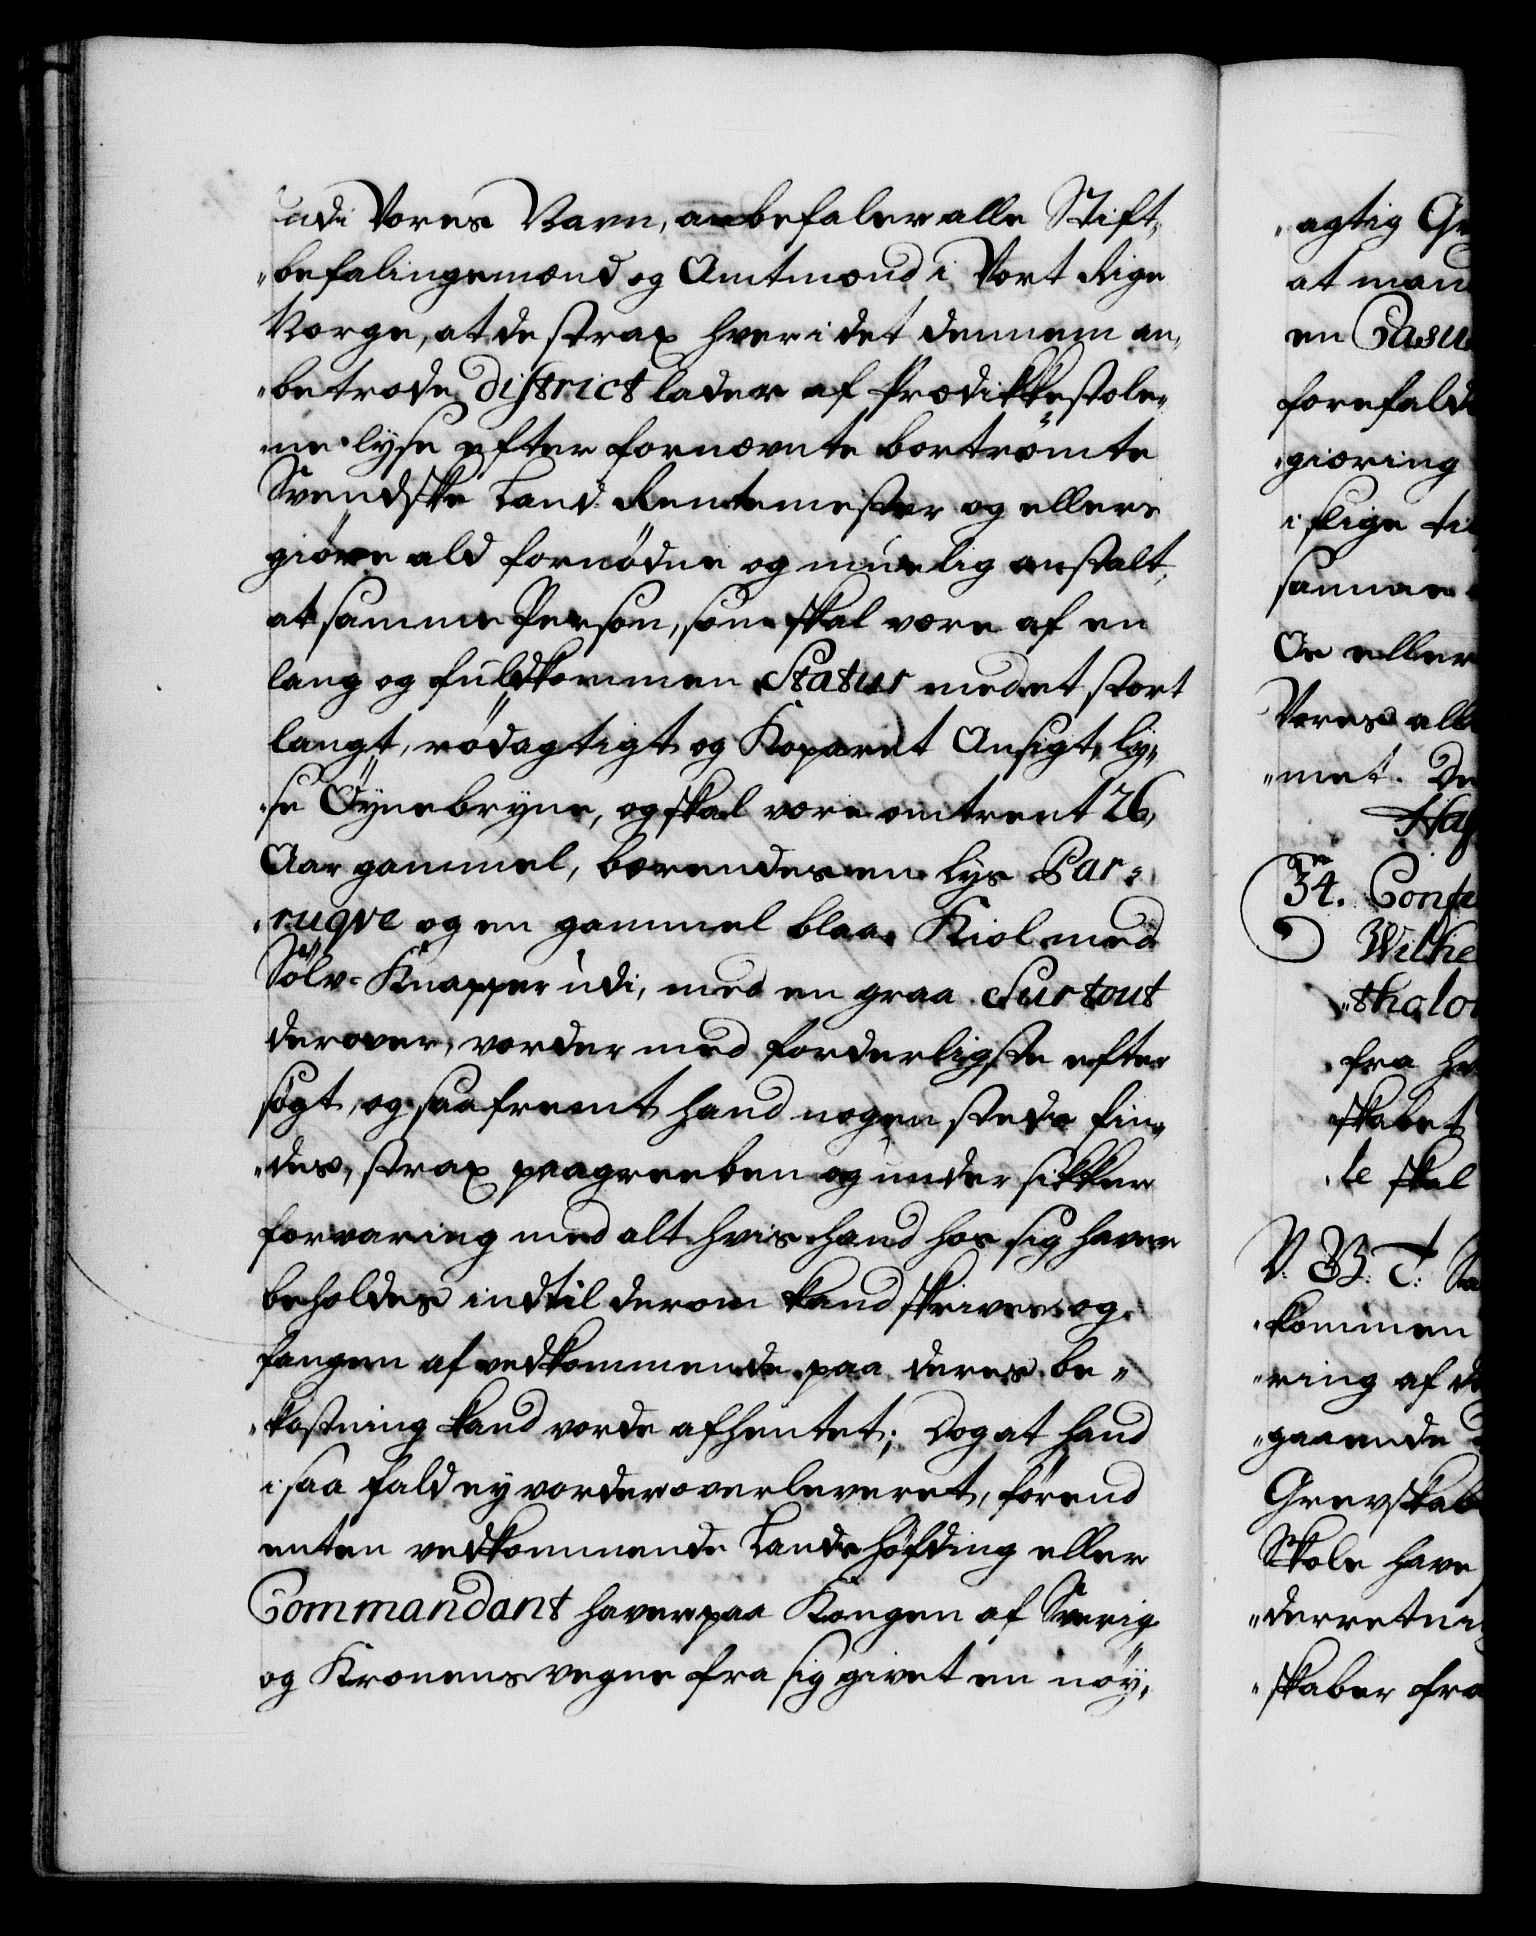 udi Vores Navn, anbefaler alle Stift„
„befalingsmænd og Amtmænd i Vort Rige
Norge, at de strax hver i det dennem an„
„betroede District lader af Prædikkestole„
„ne lyse efter fornævnte bortrømte
Svendske Land Rentemester og ellers
giøre ald fornødne og muelig anstalt,
at samme Person, som skal være af en
lang og fuldkommen Statur med et stort
langt, rødagtigt og Koparet Ansigt, ly„
„se Øynebryne, og skal være omtrent 26,
Aar gammel, bærendes en lys Par„
„ruqve og en gammel blaae Kiol med
Sølv-Knapper udi, med en graa Surtout
derover, vorder med forderligste efter
søgt, og saafremt hand nogen steds fin„
„des, strax paagreeben og under sikker
forvaring med alt hvis hand hos sig haver
beholdes indtil derom kand skrives og
fangen af vedkommende paa deres be„
„kostning kand vorde afhentet; Dog at hand
i saa fald ey vorder overleveret, førend
enten vedkommende Landshøfding eller
Commandant haver paa Kongen af Sverig
og Kronens vegne fra sig givet en nöy„
„agtig
at man
en Casu
forefald
„giøring
i slige til
samme
Os eller
Vores all
„met. De
34. Confe
Wilhe
„tholo
fra
skabet
le skal
V. B. T.
kommen
„ring af
„gaaende
Grevskab
Skole have
„derretni
„skaber fra